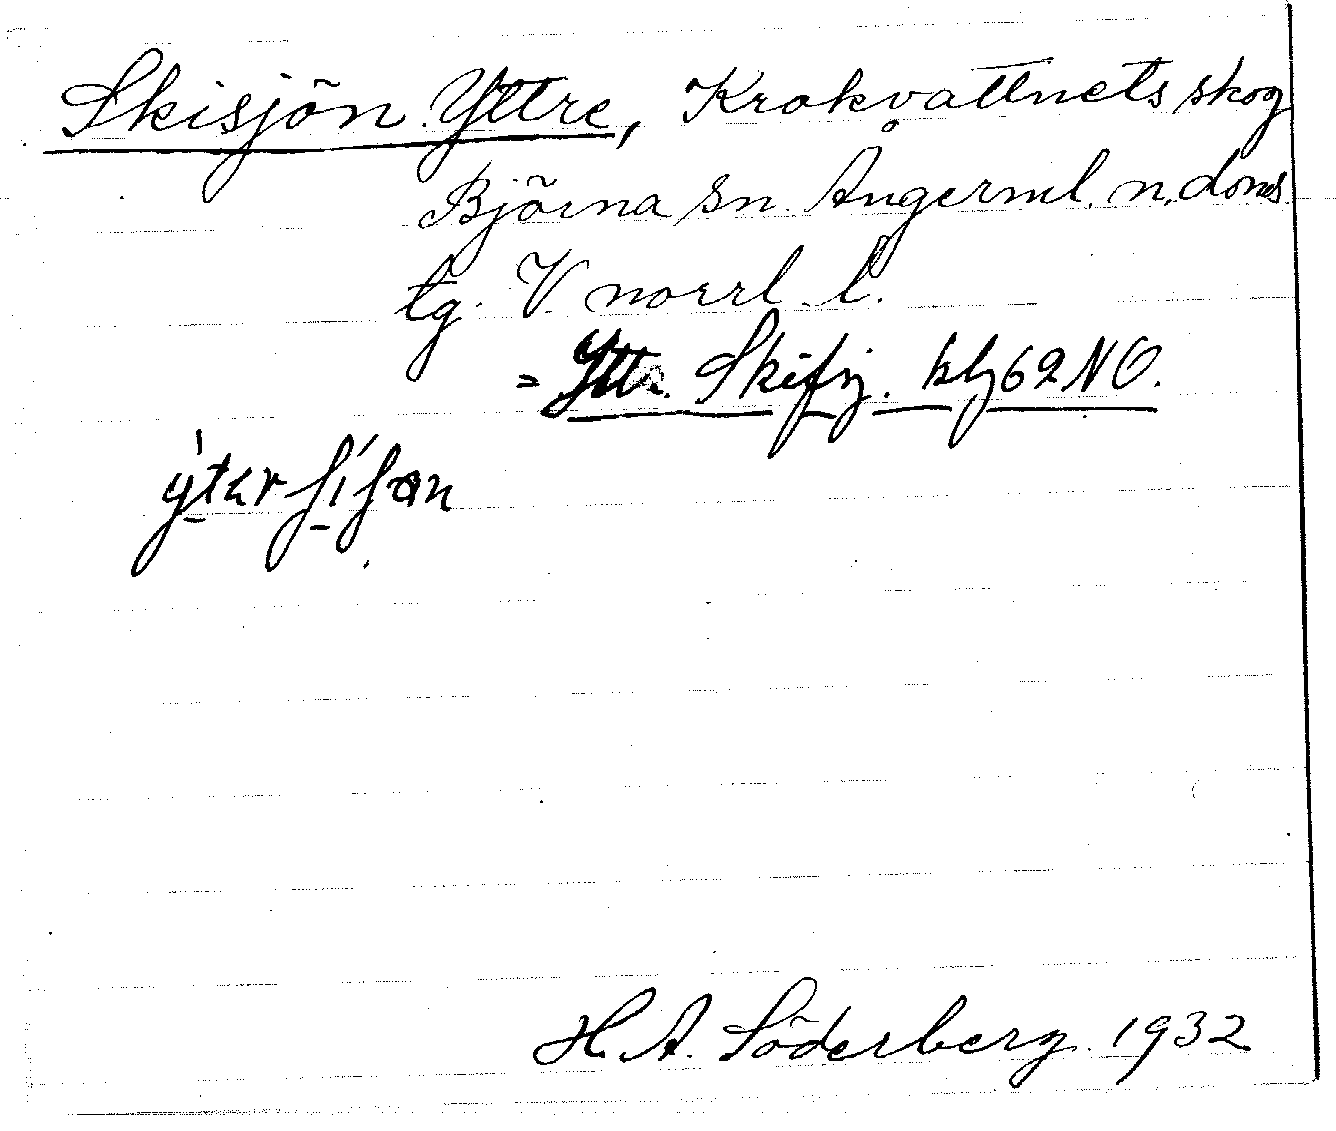 Skisjön Yttre, Krokvattnets skog
Björna sn. Ångerml. n. doms
tg. V norrl. l.
= Yttr. Skisj. kbl 62 NO.
ýtər ʃíʃøn
H. A. Söderberg 1932